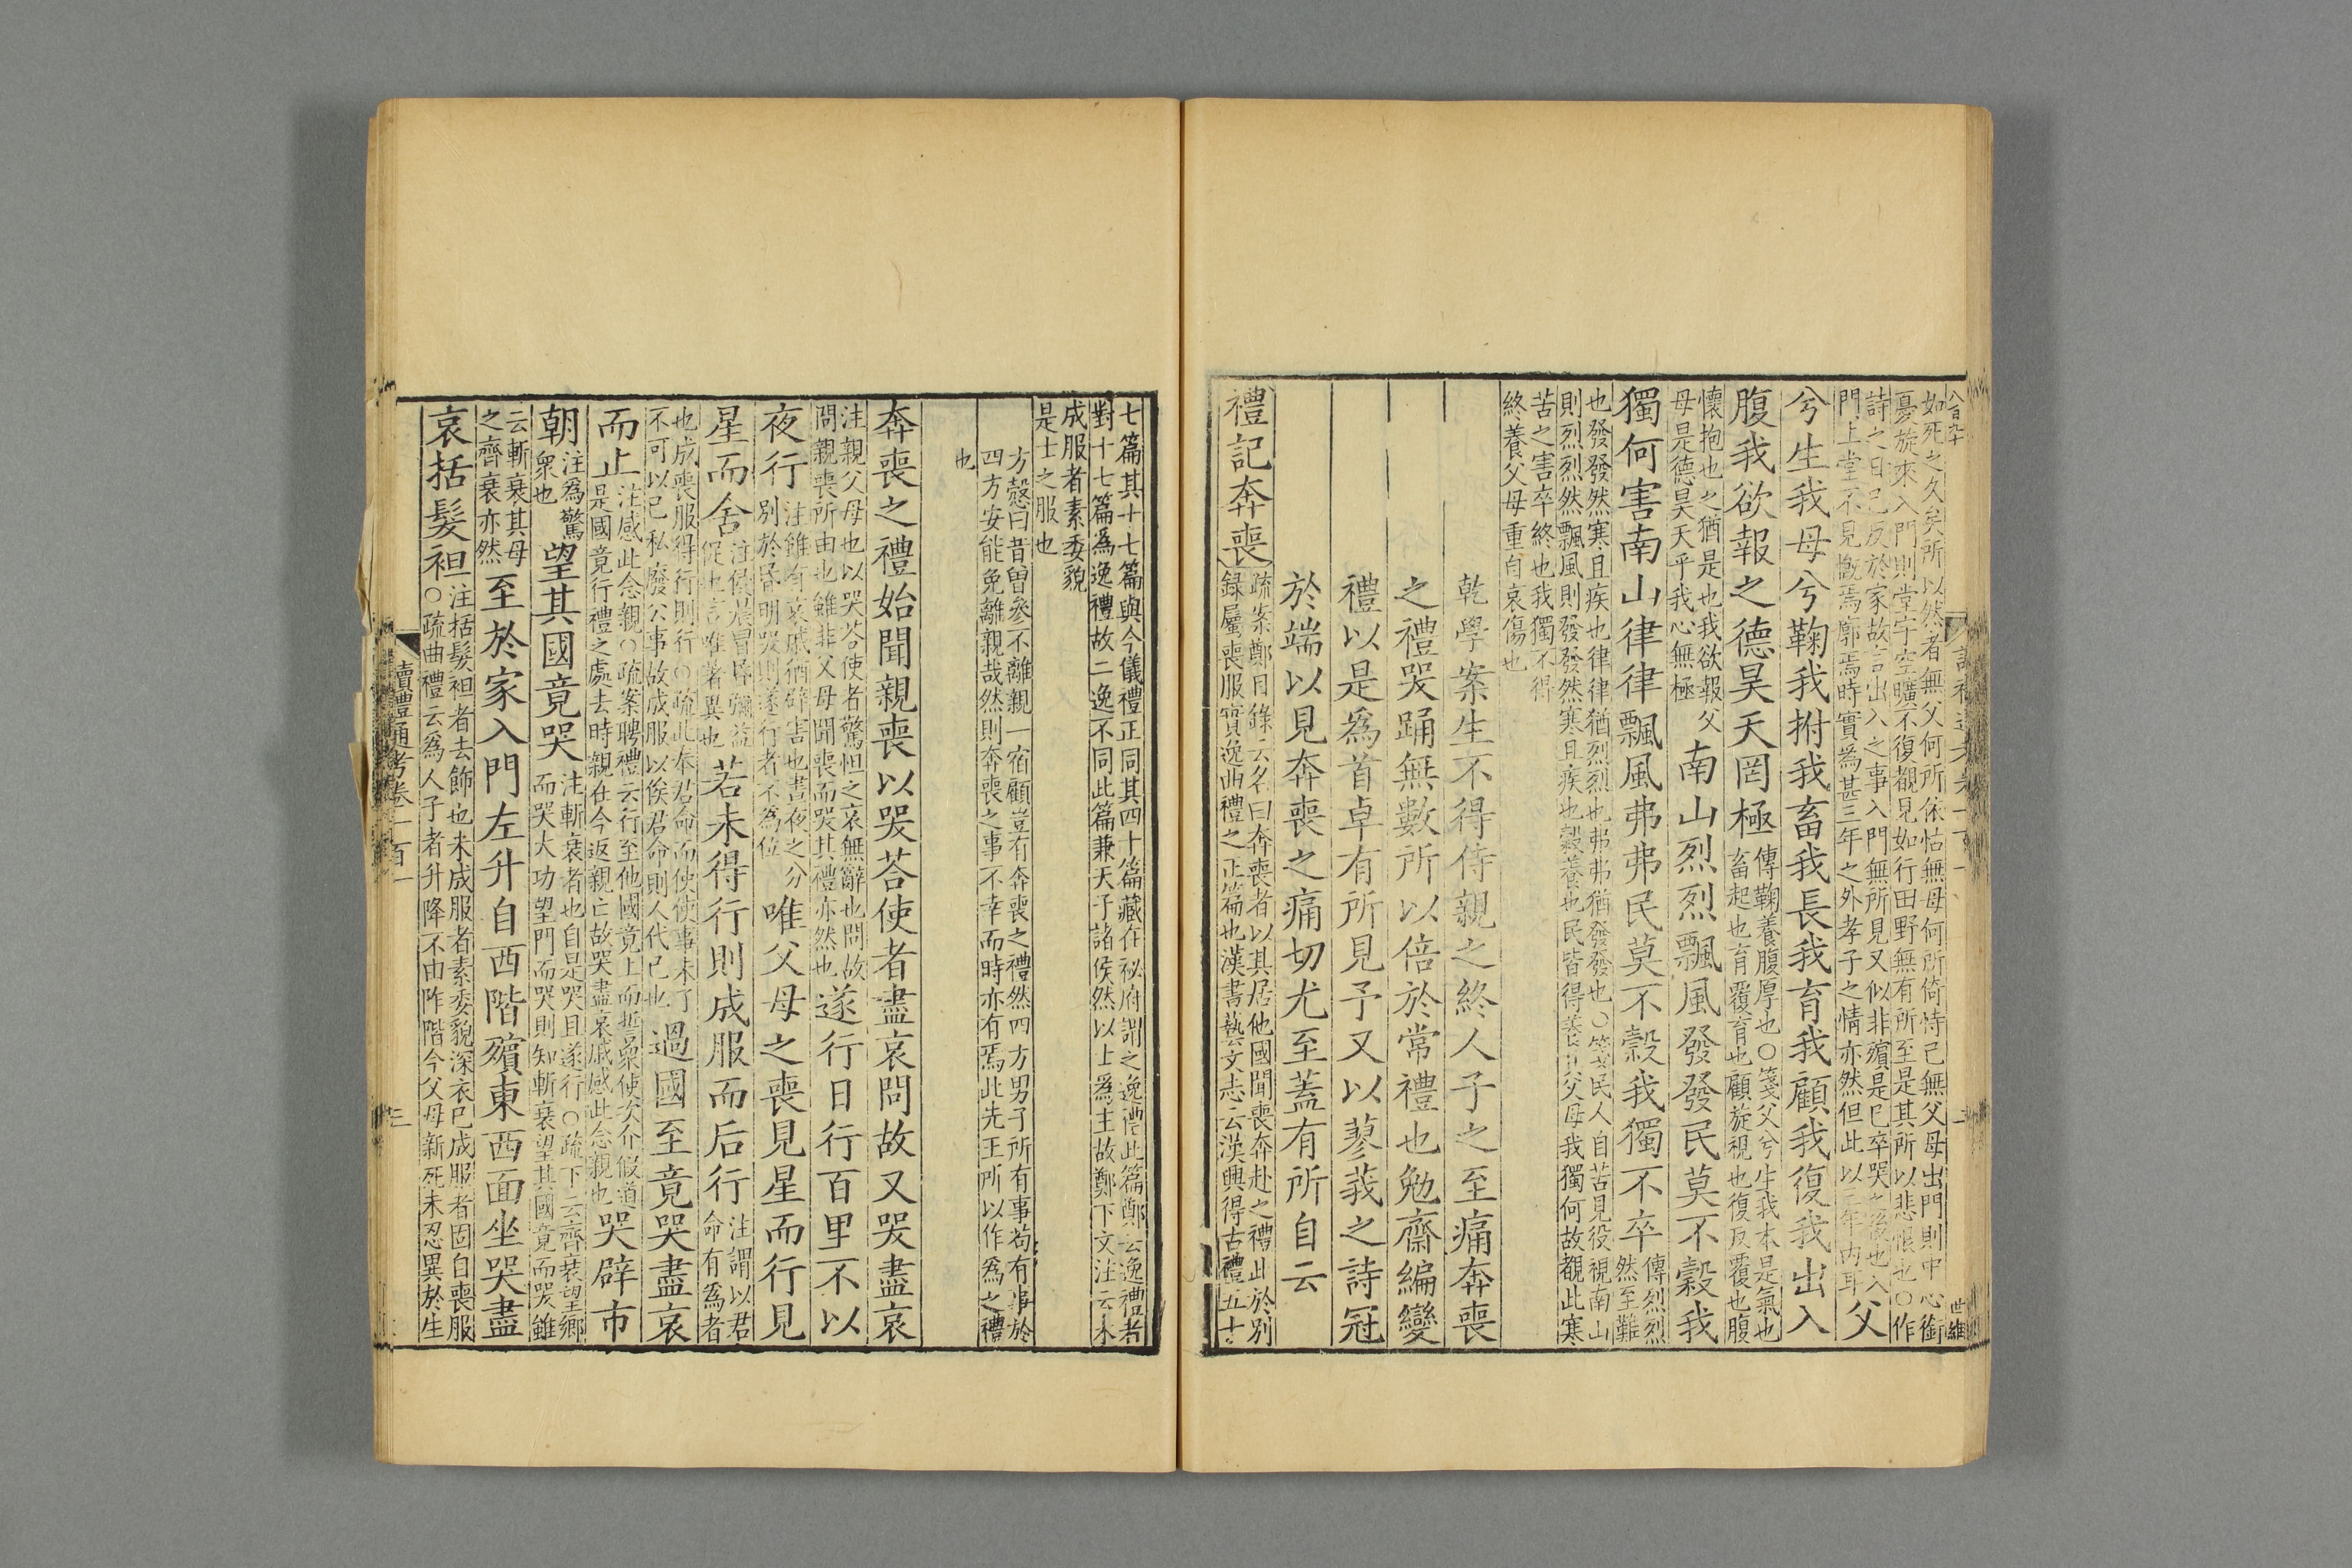 如死之久矣所以然者無父何所依怙無母何所倚恃己無父母出門則中心銜
憂旋來入門則堂宇空曠不復覩見如行田野無有所至是其所以悲恨也○作
詩之日已反於家故言出入之事入門無所見又似非殯是已卒哭之後也入
門上堂不見慨焉廓焉時實為甚三年之外孝子之情亦然但此以三年內耳
父
兮生我母兮鞠我拊我畜我長我育我顧我復我出入
腹我欲報之德昊天罔極
傳鞠養腹厚也○箋父兮生我本是氣也
畜起也育覆育也顧旋視也復反覆也腹
懷抱也之猶是也我欲報父
母是德昊天乎我心無極
南山烈烈飄風發發民莫不穀我
獨何害南山律律飄風弗弗民莫不穀我獨不卒
傳烈烈
然至難
也發發然寒且疾也律律猶烈烈也弗弗猶發發也○箋民人自苦見役視南山
則烈烈然飄風則發發然寒且疾也穀養也民皆得養其父母我獨何故覩此寒
苦之害卒終也我獨不得
終養父母重自哀傷也
乾學案生不得侍親之終人子之至痛奔喪
之禮哭踊無數所以倍於常禮也勉齋編變
禮以是為首卓有所見予又以蓼莪之詩冠
於端以見奔喪之痛切尤至蓋有所自云
禮記奔喪
疏案鄭目錄云名曰奔喪者以其居他國聞喪奔赴之禮此於別
録屬喪服實逸曲禮之正篇也漢書藝文志云漢興得古禮五十
七篇其十七篇與今儀禮正同其四十篇藏在祕府謂之逸禮此篇鄭云逸禮者
對十七篇為逸禮故二逸不同此篇兼天子諸侯然以士為主故鄭下文注云未
成服者素委貌
是士之服也
方愨曰昔曾參不離親一宿顧豈有奔喪之禮然四方男子所有事苟有事於
四方安能免離親哉然則奔喪之事不幸而時亦有焉此先王所以作為之禮
也
奔喪之禮始聞親喪以哭荅使者盡哀問故又哭盡哀
注親父母也以哭荅使者驚怛之哀無辭也問故
問親喪所由也雖非父母聞喪而哭其禮亦然也
遂行日行百里不以
夜行
注雖有哀戚猶辟害也晝夜之分
別於昏明哭則遂行者不為位
唯父母之喪見星而行見
星而舍
注侵晨冒昏彌益
促也言唯著異也
若未得行則成服而后行
注謂以君
命有為者
也成喪服得行則行○疏此奉君命而使使事未了
不可以己私廢公事故成服以俟君命則人代己也
過國至竟哭盡哀
而止
注感此念親○疏案聘禮云行至他國竟上而誓衆使次介假道
是國竟行禮之處去時親在今返親亡故哭盡哀戚感此念親也
哭辟市
朝
注為驚
衆也
望其國竟哭
注斬衰者也自是哭且遂行○疏下云齊衰望鄉
而哭大功望門而哭則知斬衰望其國竟而哭雖
云斬衰其母
之齊衰亦然
至於家入門左升自西階殯東西面坐哭盡
哀括髮袒
注括髮袒者去飾也未成服者素委貌深衣已成服者固自喪服
○疏曲禮云為人子者升降不由阼階今父母新死未忍異於生
讀禮通考卷一百一
三